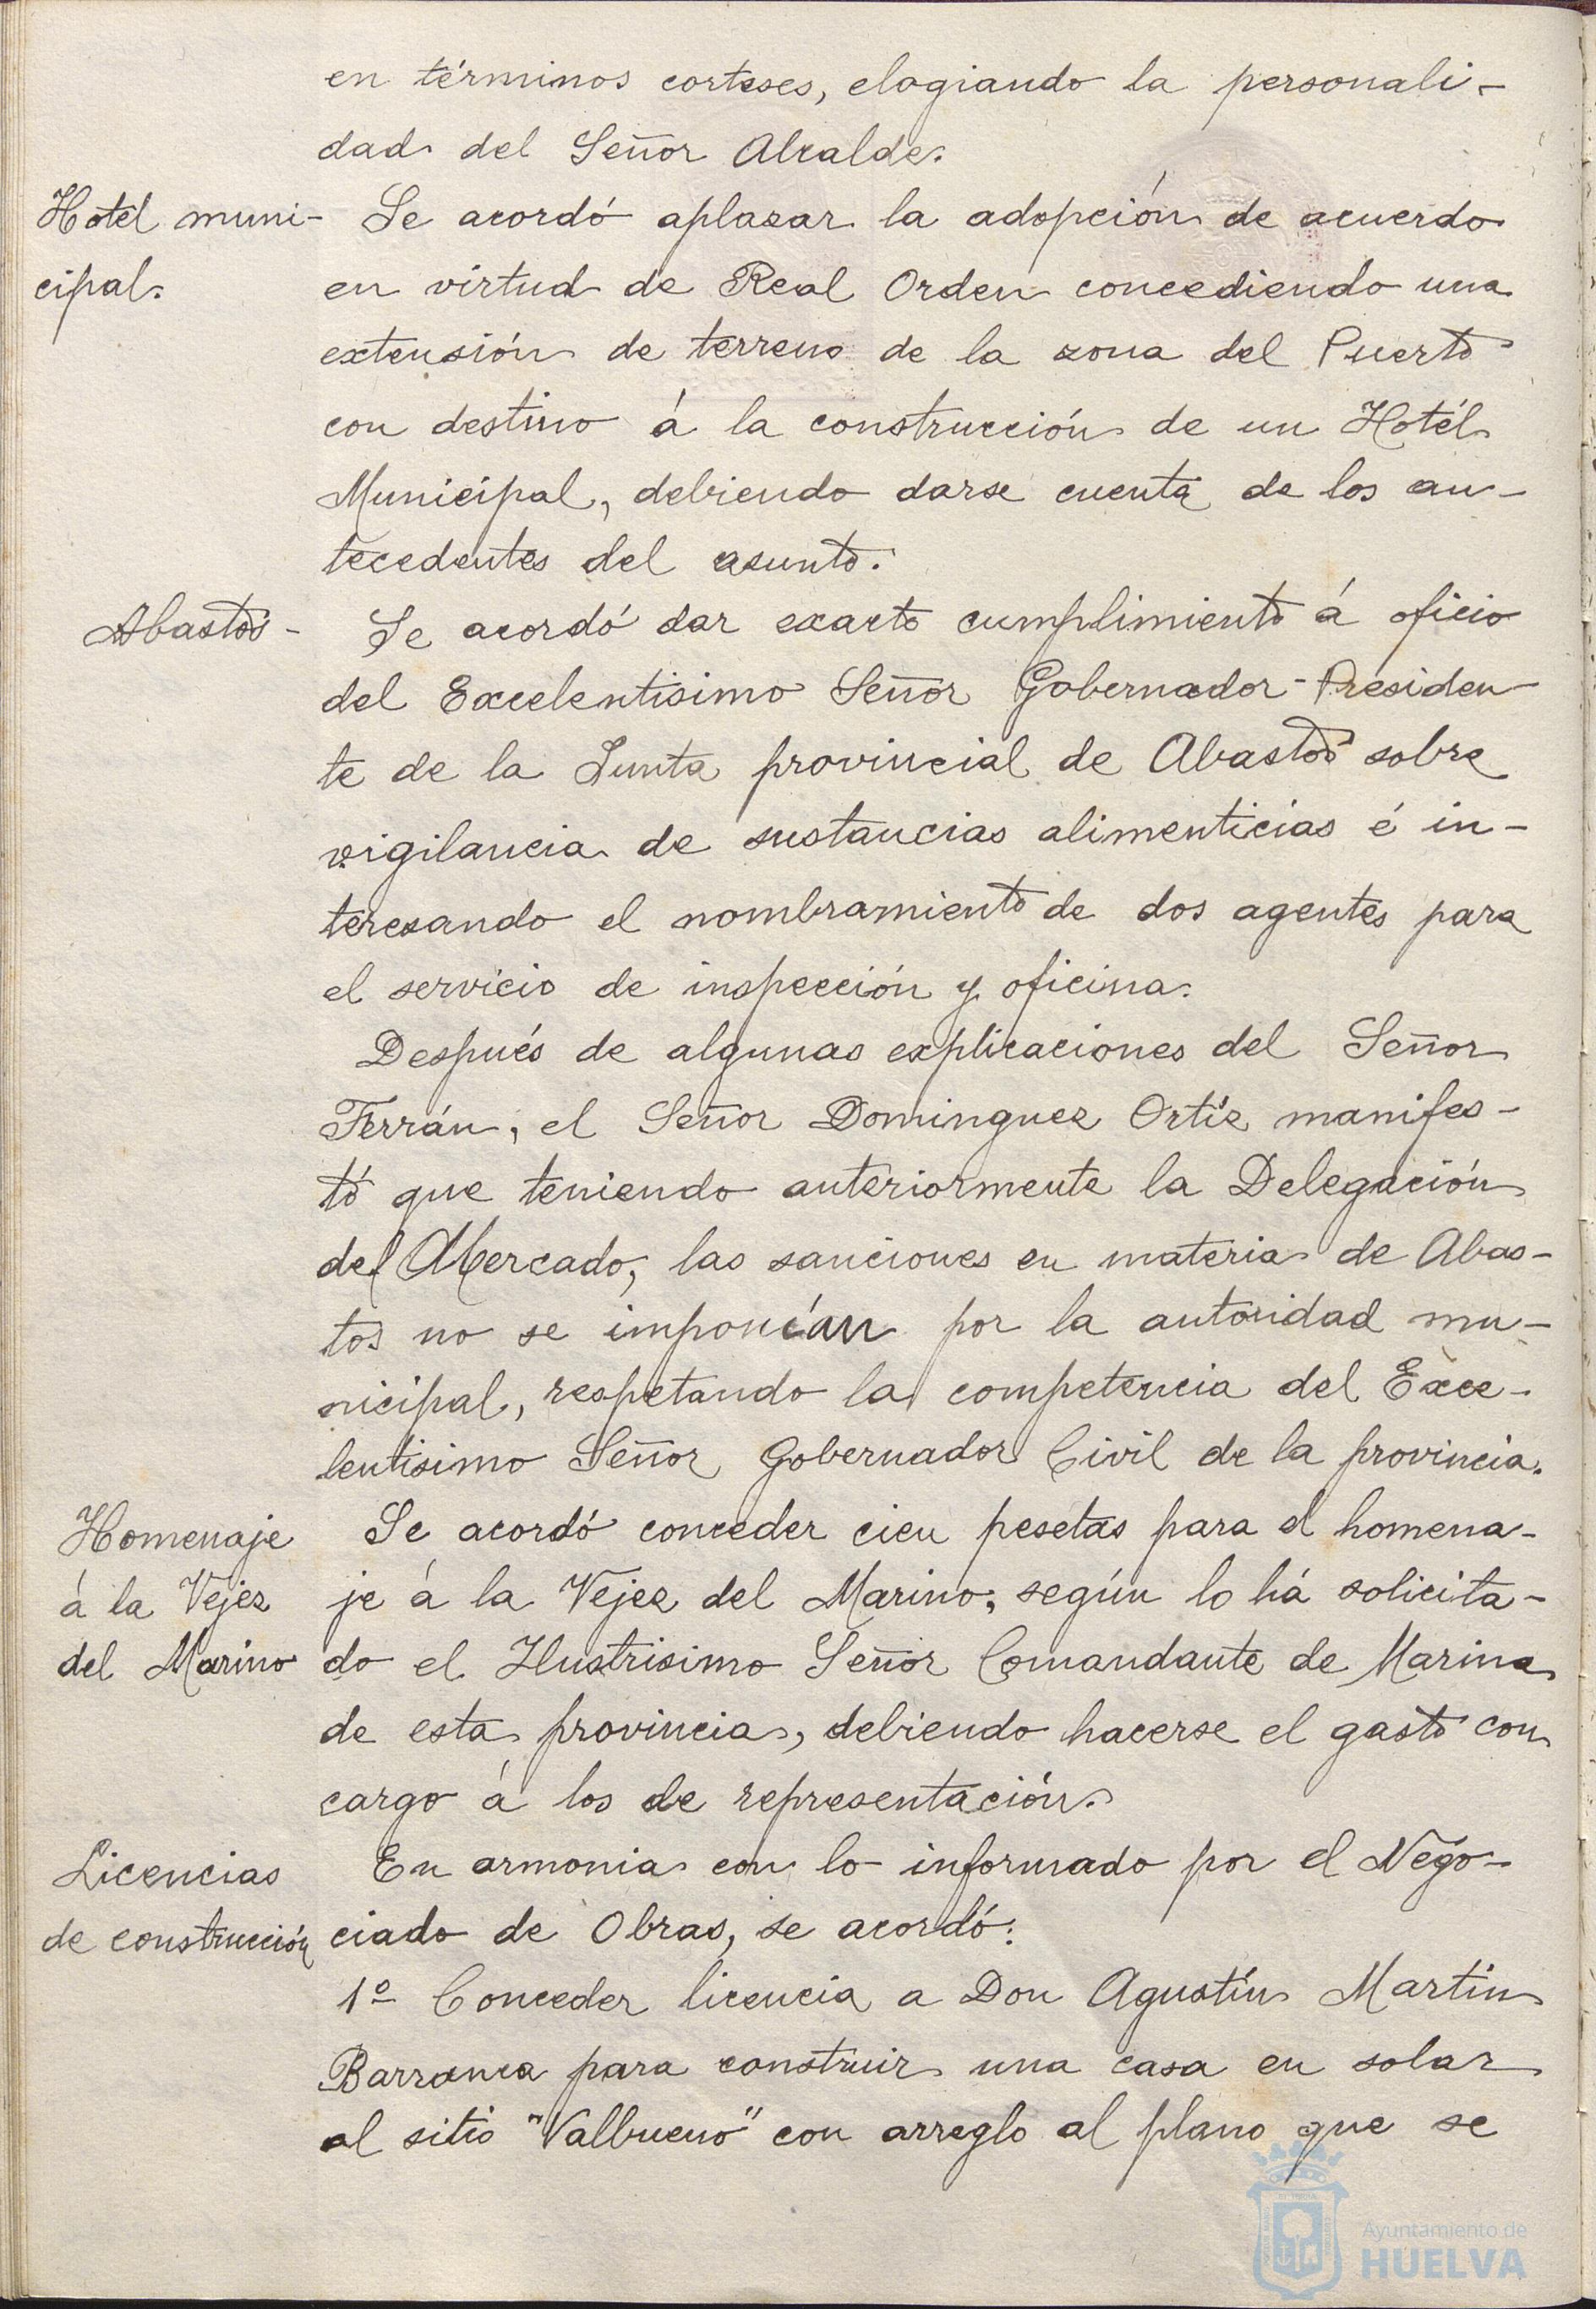 en términos corteses, elogiando la personali-
dad del Señor Alcalde.
Hotel muni-
cipal.
Se acordó aplazar la adopción de acuerdo
en virtud de Real Orden concediendo una
extensión de terreno de la zona del Puerto
con destino á la construcción de un Hotél
Municipal, debiendo darse cuenta de los an-
tecedentes del asunto.
Abastos-
Se acordó dar exacto cumplimiento á oficio
del Excelentisimo Señor Gobernador-Presiden-
te de la Junta provincial de Abastos sobre
vigilancia de sustancias alimenticias é in-
teresando el nombramiento de dos agentes para
el servicio de inspección y oficina.
Después de algunas explicaciones del Señor
Ferrán, el Señor Dominguez Ortíz manifes-
tó que teniendo anteriormente la Delegación
del Mercado, las sanciones en materia de Abas-
tos no se imponían por la autoridad mu-
nicipal, respetando la competencia del Exce-
lentisimo Señor Gobernador Civil de la provincia.
Homenaje
á la Vejez
del Marino
Se acordó conceder cien pesetas para el homena-
je á la Vejez del Marino, según lo há solicita-
do el Ilustrisimo Señor Comandante de Marina
de esta provincia, debiendo hacerse el gasto con
cargo á los de representación.
Licencias
de construcción
En armonia con lo informado por el Négo-
ciado de Obras, se acordó:
1º Conceder licencia a Don Agustín Martín
Barranca para construir una casa en solar
al sitio "Valbueno" con arreglo al plano que se
Ayuntamiento de
HUELVA